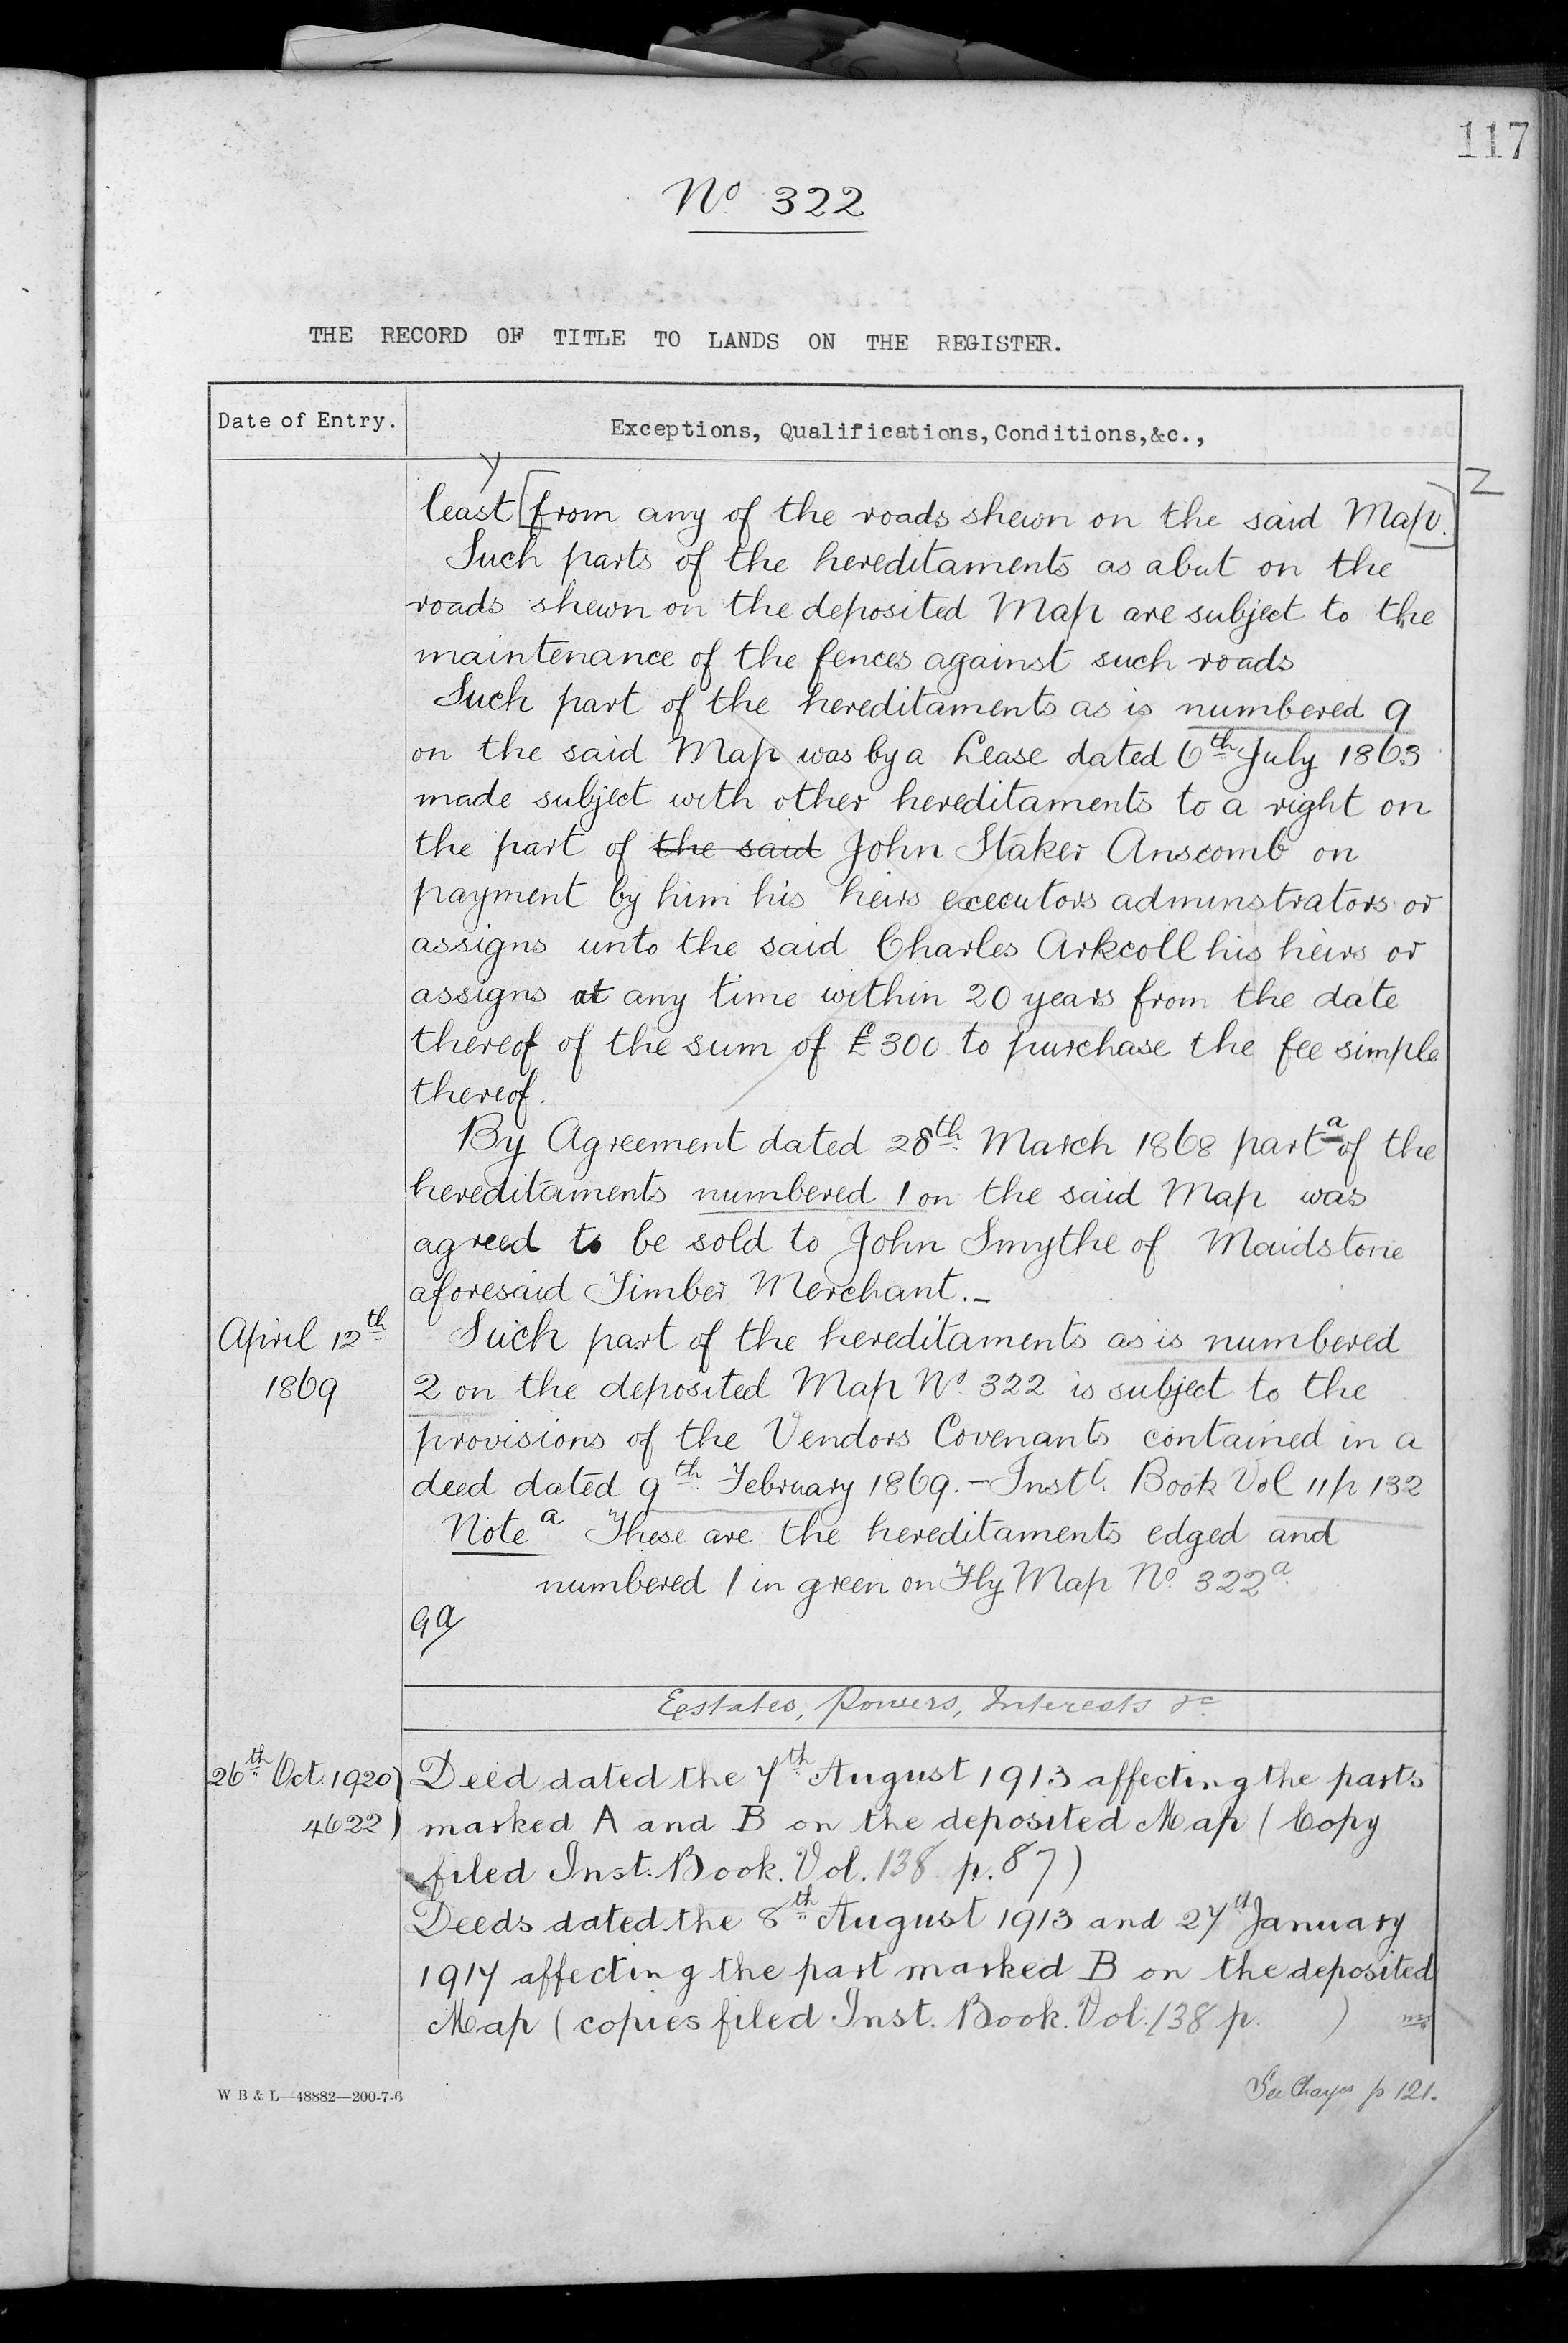 117
No 322
THE RECORD OF TITLE TO LANDS ON THE REGISTER.
Date of Entry.
Exceptions, Qualifications, Conditions, &c.,
y
least [from any of the roads shewn on the said Map.] Z
Such parts of the hereditaments as abut on the
roads shewn on the deposited Map are subject to the
maintenance of the fences against such roads
Such part of the hereditaments as is numbered 9
on the said Map was by a Lease dated 6th July 1863
made subject with other hereditaments to a right on
the part of the said John Staker Anscomb on
payment by him his heirs executors adminstrators or
assigns unto the said Charles Arkcoll his heirs or
assigns at any time within 20 years from the date
thereof of the sum of £300 to purchase the fee simple
thereof.
By Agreement dated 28th March 1868 part a of the
hereditaments numbered 1 on the said Map was
agreed to be sold to John Smythe of Maidstone
aforesaid Timber Merchant.-
April 12th Such part of the hereditaments as is numbered
1869 2 on the deposited Map No. 322 is subject to the
provisions of the Vendors Covenants contained in a
deed dated 9th February 1869.- Instt. Book Vol 11 p 132
Note a These are the hereditaments edged and
numbered 1 in green on Fly Map No. 322a.
Estates, Powers, Interests &c
26th Oct. 1920) Deed dated the 7th August 1913 affecting the parts
4622) marked A and B on the deposited Map (Copy
filed Inst. Book. Vol. 138 p. 87)
Deeds dated the 8th August 1913 and 27th January
1917 affecting the part marked B on the deposited
Map (copies filed Inst. Book. Vol. 138 p. )
W B & L—48882—200-7-6
See Charges p 121.